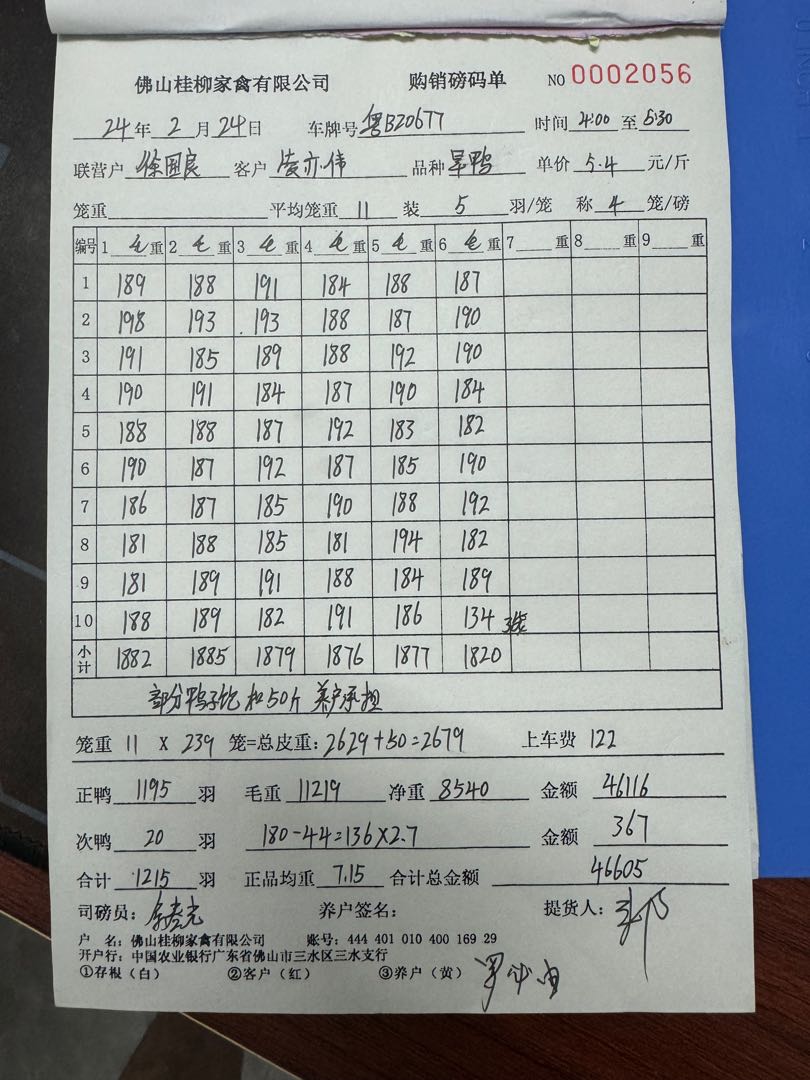 佛山桂柳家禽有限公司 购销磅码单 NO 0002056
24年 2月 24日 车牌号 粤BZ0677 时间 4:00 至 5:30
联营户 徐国良 客户 凌亦伟 品种 旱鸭 单价 5.4 元/斤
笼重 平均笼重 11 装 5 羽/笼 称 4 笼/磅
编号 1 毛 重 2 毛 重 3 毛 重 4 毛 重 5 毛 重 6 毛 重 7 重 8 重 9 重
1 189 188 191 184 188 187
2 198 193 193 188 187 190
3 191 185 189 188 192 190
4 190 191 184 187 190 184
5 188 188 187 192 183 182
6 190 187 192 187 185 190
7 186 187 185 190 188 192
8 181 188 185 181 194 182
9 181 189 191 188 184 189
10 188 189 182 191 186 134 3笼
小计 1882 1885 1879 1876 1877 1820
部分鸭子饱 扣50斤 养户承担
笼重 11 X 239 笼=总皮重: 2629+50=2679 上车费 122
正鸭 1195 羽 毛重 11219 净重 8540 金额 46116
次鸭 20 羽 180-44=136×2.7 金额 367
合计 1215 羽 正品均重 7.15 合计总金额 46605
司磅员: 养户签名: 提货人:
户 名: 佛山桂柳家禽有限公司 账号: 444 401 010 400 169 29
开户行: 中国农业银行广东省佛山市三水区三水支行
①存根(白) ②客户(红) ③养户(黄)